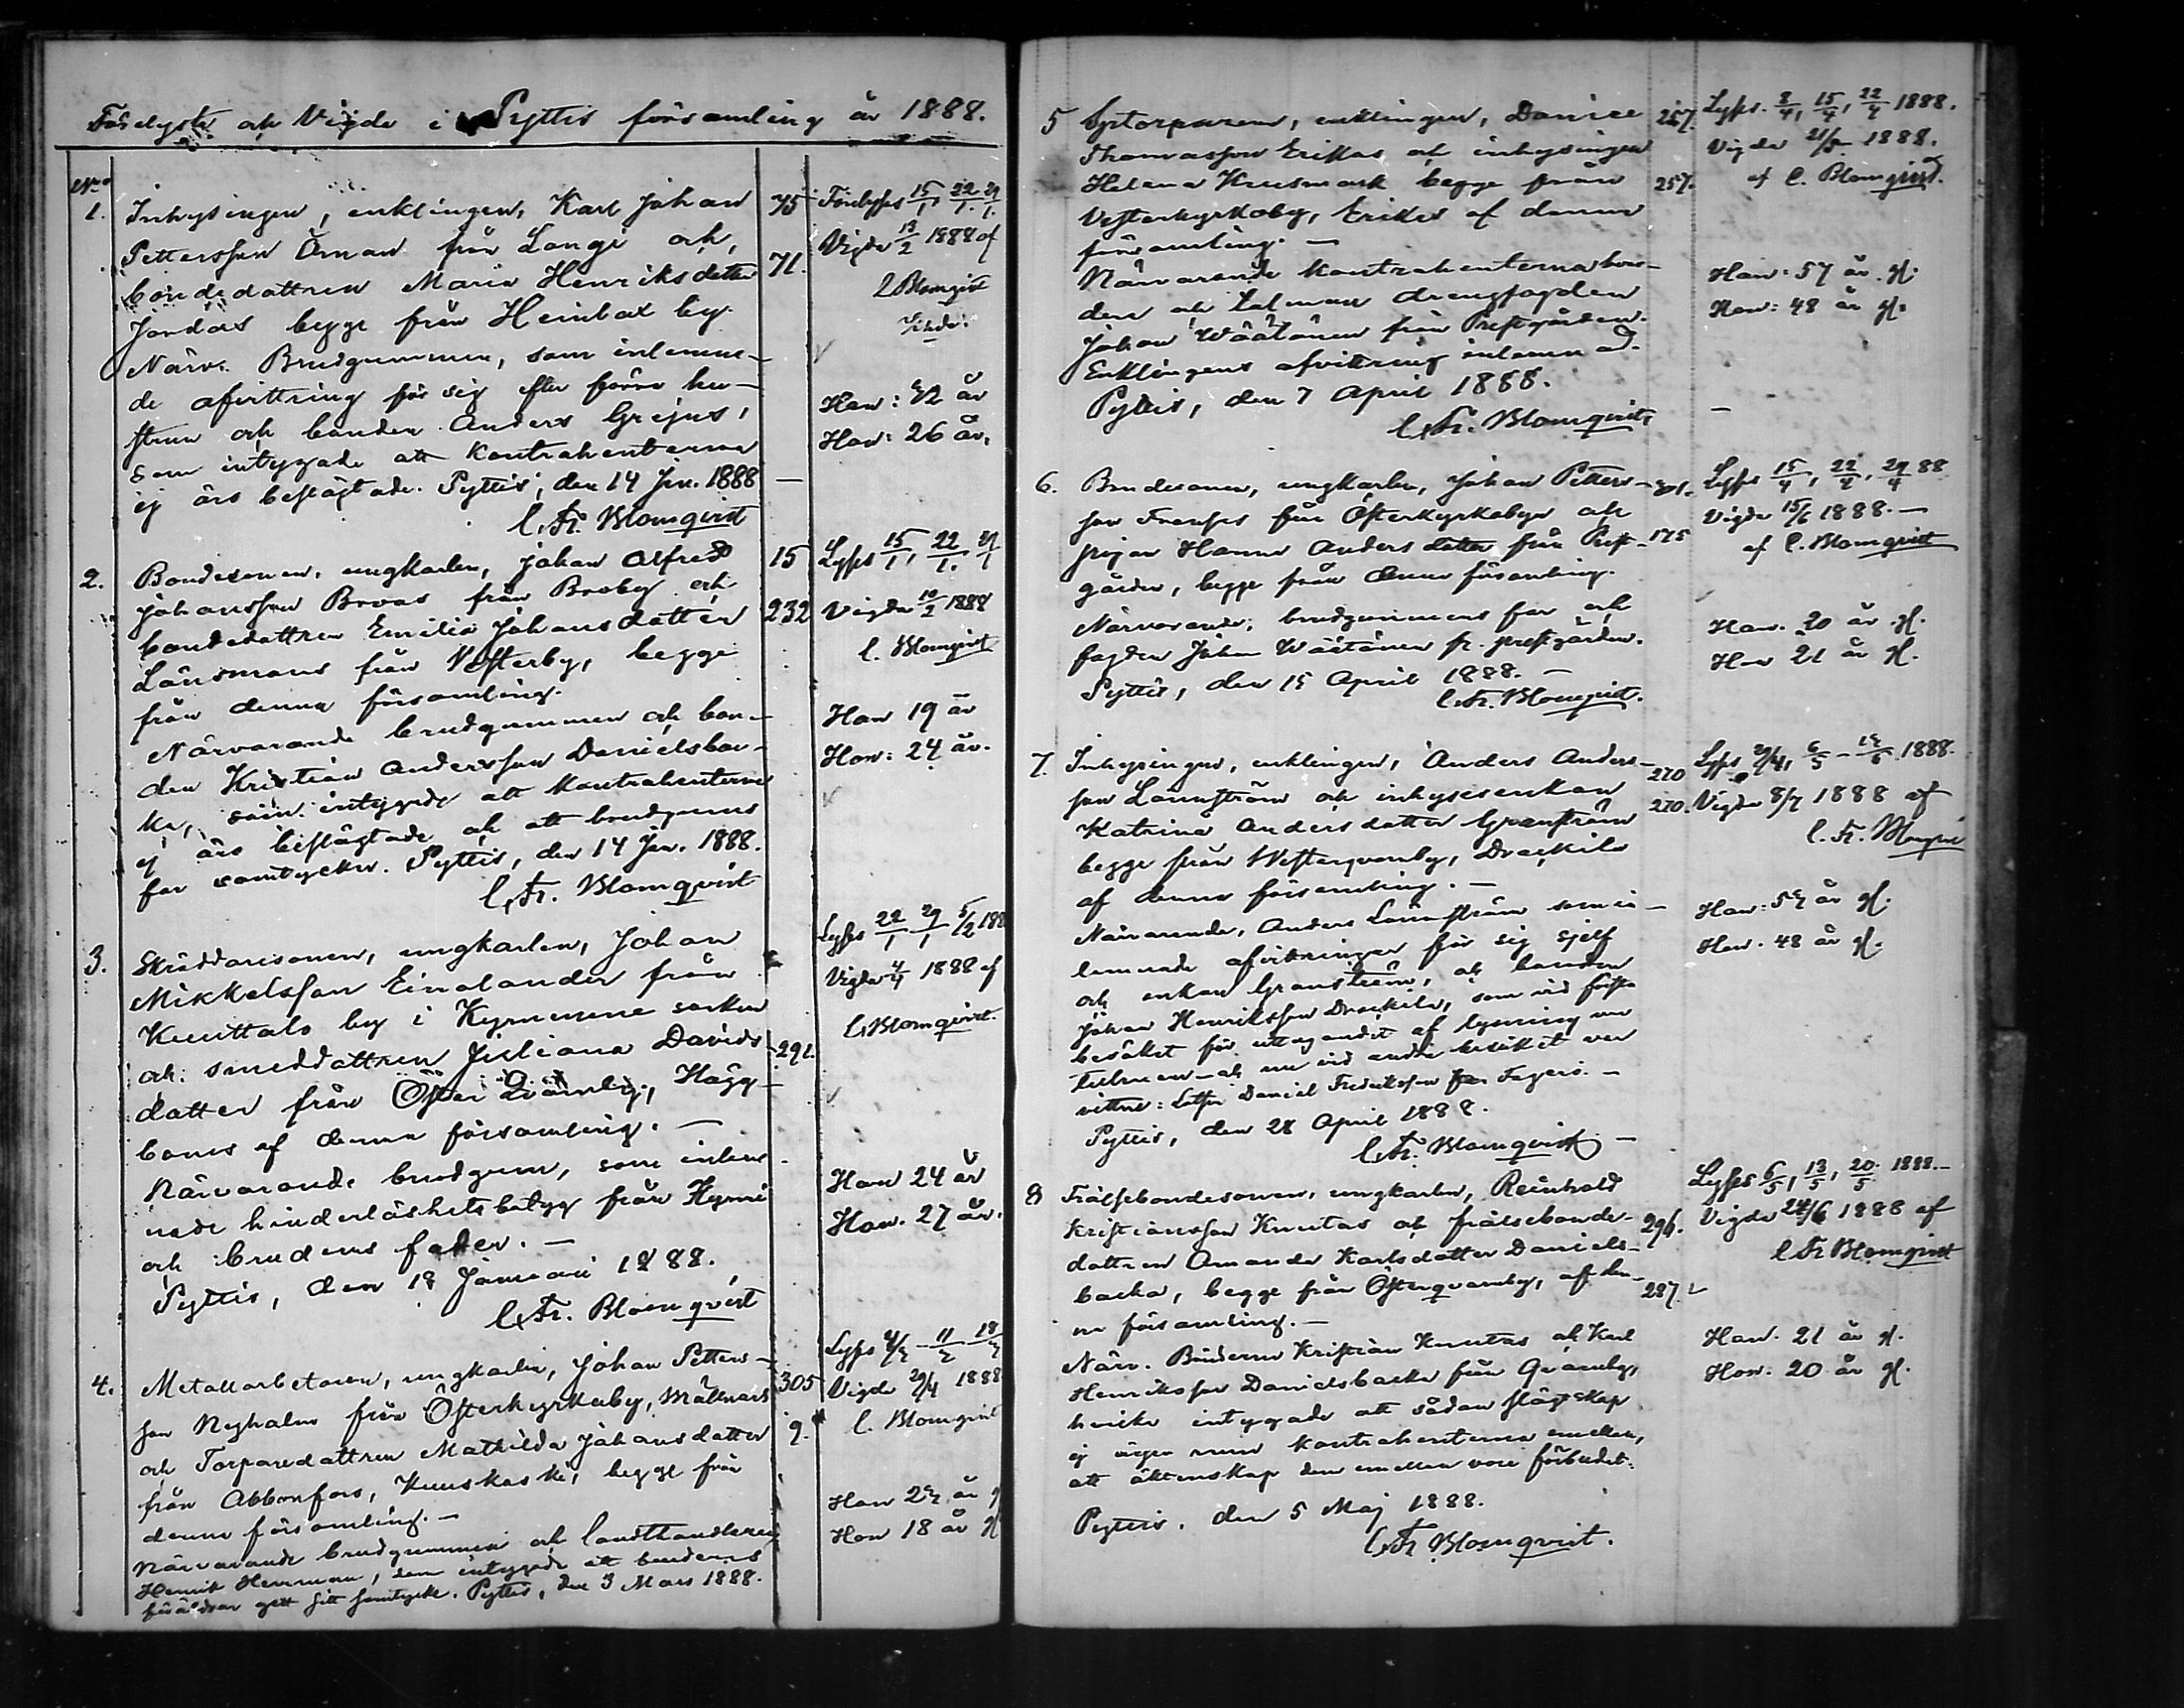 Förelyste och Vigde i Pyttis församling år 1888.
No
1. Inhysingen, enklingen, Karl Johan 75
Pettersson Öman från Långö och,
bondedottren Maria Henriksdotter 71.
Jordas begge från Heinlax by.
Närv. Brudgummen, som inlemna-
de afvittring för sig efter förra hu-
strun och bonden Anders Grejus,
som intygade att kontrahenterna
ej äro beslägtade. Pyttis, den 14 Jan. 1888
C. Fr. Blomqvist
Förelyses 15/1 22/1. 29/1.
Vigde 13/2 1888 af
C Blomqvist
Han: 42 år
Hon: 26 år.
2. Bondesonen, ungkarlen, Johan Alfred 15
Johansson Broas från Broby och
bondedottren Emilia Johansdotter 232
Länsmans från Westerby, begge
från denna församling.
Närvarande brudgummen och bon-
den Kristian Andersson Danielsbac-
ka, som intygade att kontrahenterna
ej äro beslägtade och att brudgums
far samtycker. Pyttis, den 14 Jan. 1888.
C. Fr. Blomqvist
Lyses 15/1, 22/1. 29/1
Vigde 10/2 1888
C. Blomqvist
Han 19 år
Hon: 24 år.
3. Skräddaresonen, ungkarlen, Johan
Mikkelsson Einolander från
Knuttals by i Kymmene socken
och smeddottren Juliana Davids- 291.
dotter från Öster Qvarnby, Hägg-
boms af denna församling. —
Närvarande brudgum, som inlem-
nade hinderlöshetsbetyg från Kymi
och brudens fader. —
Pyttis, den 18 Januari 1888.
C. Fr. Blomqvist
Lyses 22/1 29/1 5/2 188
Vigde 4/4 1888 af
C. Blomqvist.
Han 24 år
Hon. 27 år.
4. Metallarbetaren, ungkarlen, Johan Petters-
son Nyholm från Österkyrkoby, Mällnars 305
och Torparedottren Mathilda Johansdotter 9.
från Abborfors, Kuuskoski, begge från
denna församling. —
Närvarande brudgummen och landthandleren
Henrik Henman, som intygade att brudens
föräldrar gett sitt samtycke. Pyttis, den 3 Mars 1888.
Lyses 4/3 - 11/3 18/3
Vigde 29/4 1888
C. Blomqvist
Han 23 år g
Hon 18 år gl
5 Sytorparen, enklingen, Daniel 257.
Thomasson Erikas och inhysingen
Helena Krusmark begge från 257.
Vesterkyrkoby, Erikes af denna
församling. —
Närvarande kontrahenterna bru-
den och talman drengfogden
Johan Wäätänen från Prestgården.
Enklingens afvittring inlemnad.
Pyttis, den 7 April 1888.
C. Fr. Blomqvist,
Lyses. 8/4, 15/4, 22/4 1888.
Vigde 21/5 1888.
af C. Blomqvist.
Han: 57 år gl.
Hon: 48 år gl.
6. Bondesonen, ungkarlen, Johan Petters-
son Fransas från Österkyrkobyn och
pigan Hanna Andersdotter från Prest- 175
gården, begge från denna församling.
Närvarande, brudgummens far och
fogden Johan Wäätänen fr. prestgården.
Pyttis, den 15 April 1888. —
C. Fr. Blomqvist.
Lyses 15/4, 22/4, 29/4 88
Vigde 15/6 1888. —
af C. Blomqvist
Han. 20 år gl.
Hon 21 år gl.
7. Inhysingen, enklingen, Anders Anders- 270
son Lönnström och inhysesenkan
Katrina Andersdotter Granström 270.
begge från Westerqvarnby, Drackila
af denna församling. —
Närvarande, Anders Lönnström som in-
lemnade afvittringar för sig sjelf
och enkan Granström, och bonden
Johan Henriksson Drackila, som vid första
besöket för uttagandet af lysning var
talman och nu vid andra besöket var
vittne: Lotsen Daniel Fredriksson från Fagerö. —
Pyttis, den 28 April 1888.
C. Fr. Blomqvist —
Lyses 29/4, 6/5 - 13/5 1888.
Vigde 8/7 1888 af
C. Fr. Blomqvist
Han: 53 år gl.
Hon. 48 år gl.
8 Frälsebondesonen, ungkarlen, Reinhold
Kristiansson Knutas och frälsebonde- 296.
dottren Amanda Karlsdotter Daniels-
backa, begge från Österqvarnby, af den- 287.
na församling. —
Närv. Bönderna Kristian Knutas och Karl
Henriksson Danielsbacka från Qvarnby,
hvilka intygade att sådan slägtskap
ej eger rum kontrahenterna emellan,
att äktenskap dem emellan vore förbudet.
Pyttis. den 5 Maj 1888.
C. Fr. Blomqvist.
Lyses 6/5, 13/5, 20/5 1888. —
Vigde 24/6 1888 af
C. Fr Blomqvist
Han. 21 år gl.
Hon: 20 år gl.